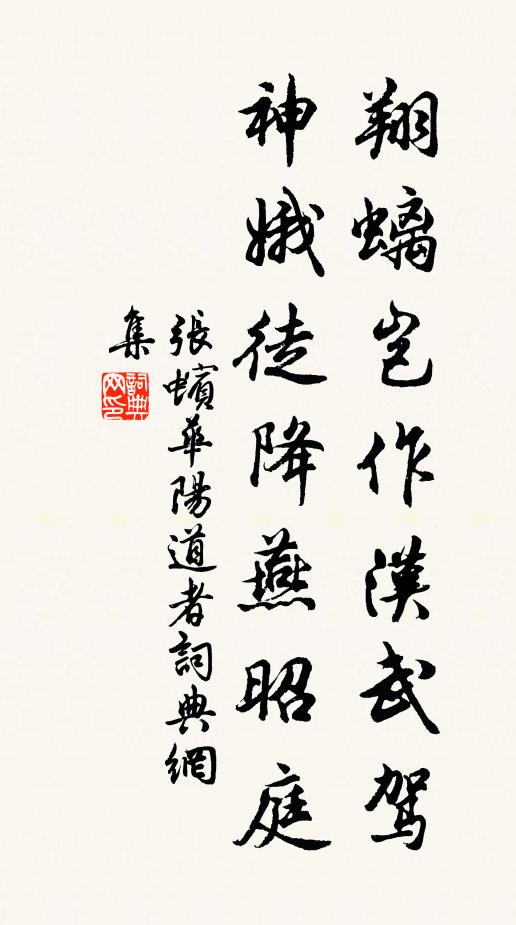 翔螭豈作漢武駕
神娥徒降燕昭庭
張蠙華陽道者詞典網
集
詞典
网印